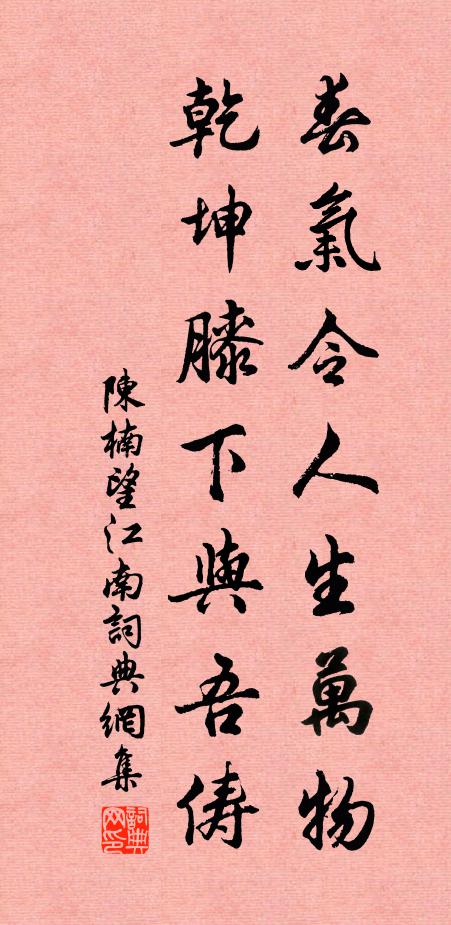 春氣令人生萬物
乾坤膝下與吾儔
陳楠望江南詞典網集
詞典网印